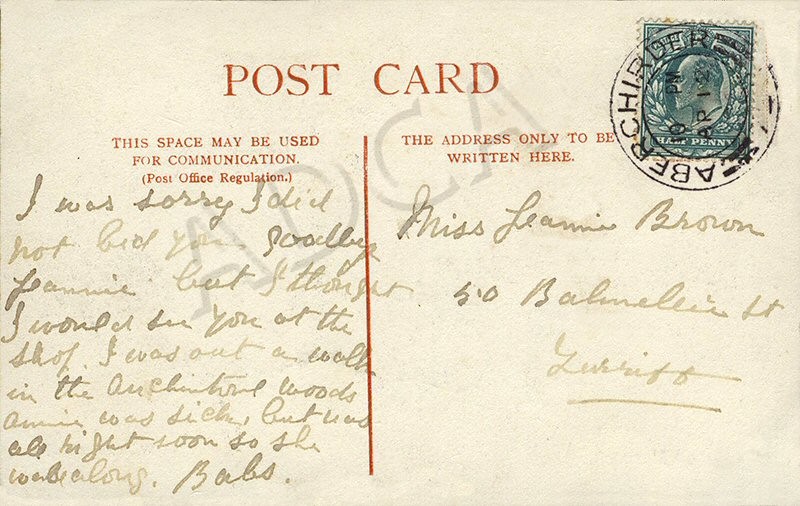 POST CARD
THIS SPACE MAY BE USED
FOR COMMUNICATION.
(Post Office Regulation.)
I was sorry I did
not bid you goodbye
Jeannie but I thought
I would see you at the
shop. I was out a walk
in the Auchintoul woods
Annie was sick, but was
all right soon so she
was along. Babs.
THE ADDRESS ONLY TO BE
WRITTEN HERE.
Miss Jeannie Brown
50 Balmellie St
Turriff
ABERCHIRDER
PM
AP 12
HALF PENNY
ADCA